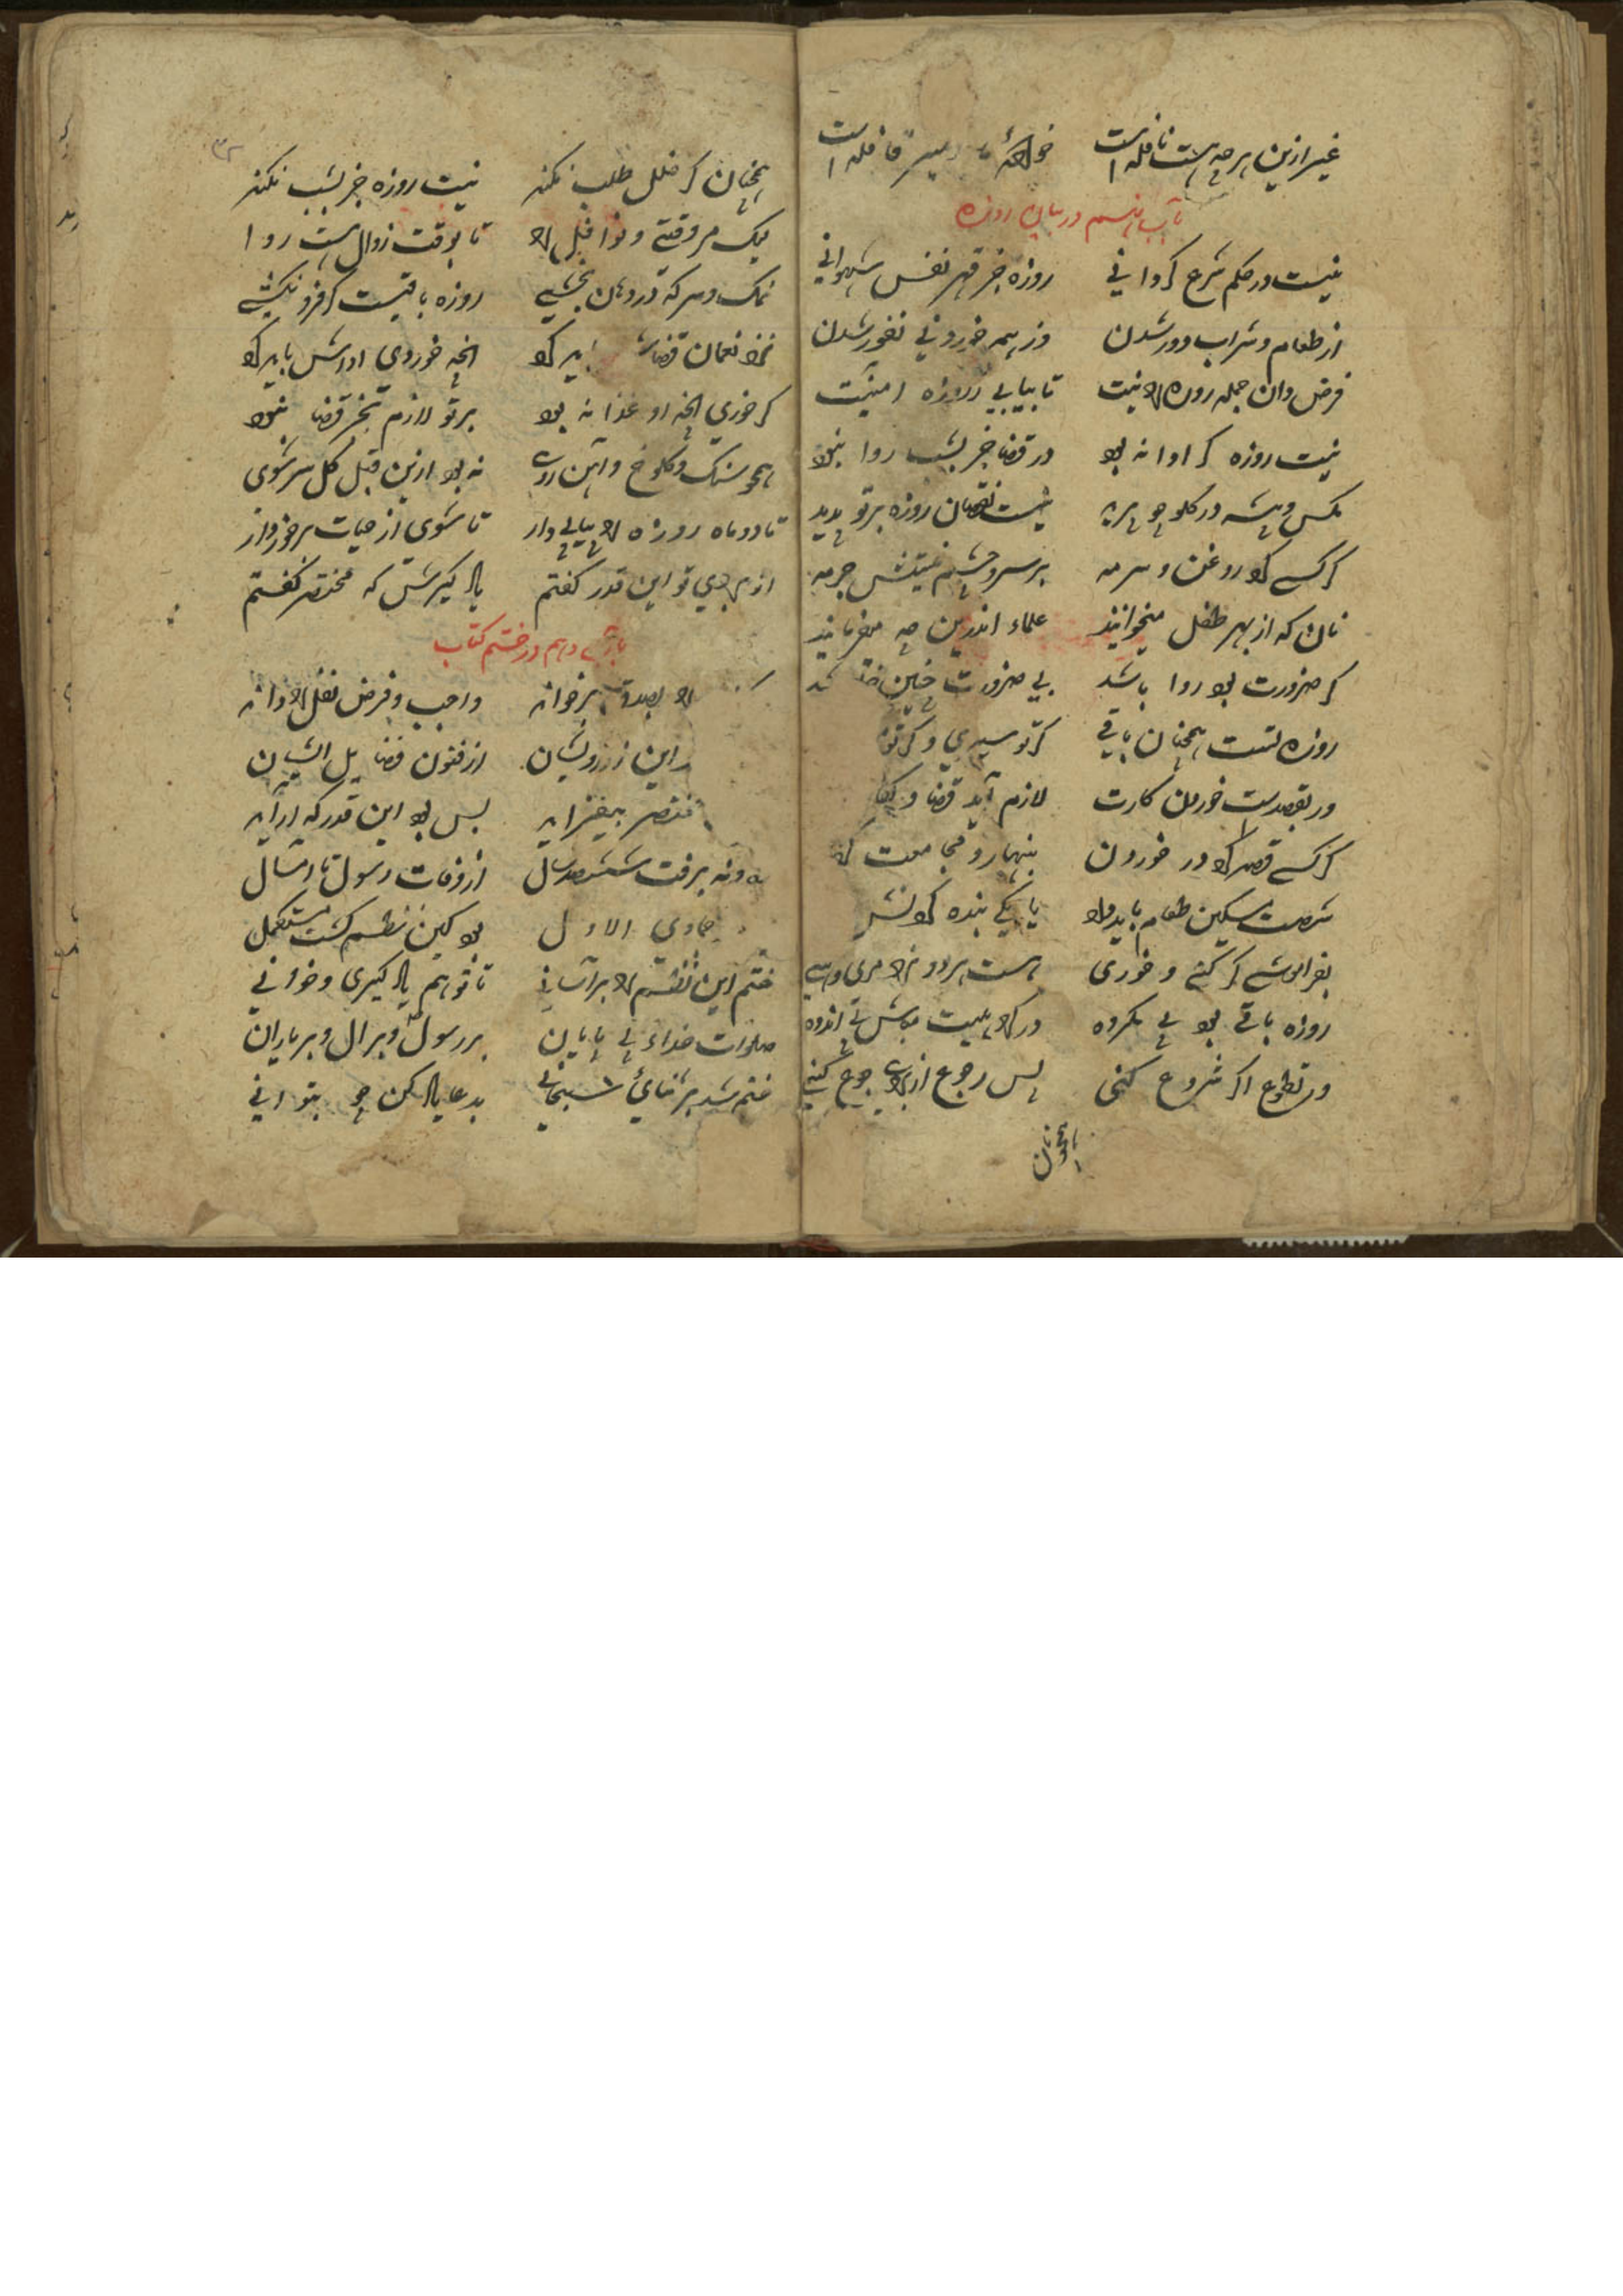 غیر ازین هرچه هست نافله است خواجهٔ میر قافله است
باب نهم در بیان روزه
نیست در حکم شرع کر دانی روزه جز قهر نفس شهوانی
از طعام و شراب دور شدن وز همه خوردنی نفور شدن
فرض دان جمله روزه را نیت تا بیابی ز روزه امنیت
نیت روزه کر ادا نه بود در قضا جز بشب روا نبود
مکس و پشه در کلو چو پرید نیست نقصان روزه بر تو پدید
کر کسی کرد روغن و سرمه بر سر و چشم نیستش جرمه
نان که از بهر طفل میخوانند علماء اندرین چه میفرمایند
کر ضرورت بود روا باشد بی ضرورت چنین خطا
روزه تست همچنان باقی کر تو سیری و کر تو
ور بقصدست خوردن کارت لازم آید قضا و
کر کسی قصد کرد در خوردن بنهار و مجامعت
شصت مسکین طعام باید داد یا یکی بنده کردنش
بفراموشی ار کنی و خوری هست هر دو نزد مردی
روزه باقی بود بی مکروه در کراهیت مباش تو اندوه
ور تطوع اکر شروع کنی پس رجوع از برای جوع کنی
همچنان
همچنان کر خلل طلب نکند نیت روزه جز بشب نکند
لیک مر وقتی و نوافل را تا بوقت زوال هست روا
نمک و سرکه در دهان بچشی روزه باقیست کر فرو نکشی
نزد نعمان قضاش باید کرد انچه خوردی اداش باید کرد
کر خوری انچه او غذا نه بود بر تو لازم بجز قضا نبود
همچو سنک و کلوخ و آهن روی نه بود ازین قبل کل سرشوی
تا دو ماه روزه را پیاپی دار تا شوی از حیات برخوردار
از برای تو این قدر کفتم یاد کیرش که مختصر کفتم
باب دهم در ختم کتاب
را بصدق برخواند واجب و فرض نفل را داند
این ز درویشان از فنون فضایل ایشان
مختصر بیفزاید بس بود این قدر که آراید
نود و نه برفت ششصد سال از وفات رسول تا امسال
جمادی الاول بود کین نظم کشت مستکمل
ختم این نظم را بر آسانی تا تو هم یاد کیری و خوانی
صلوات خدای بی پایان بر رسول و بر ال و بر یاران
ختم شد بر ثنای سبحانی بدعا یاد کن چو بتوانی